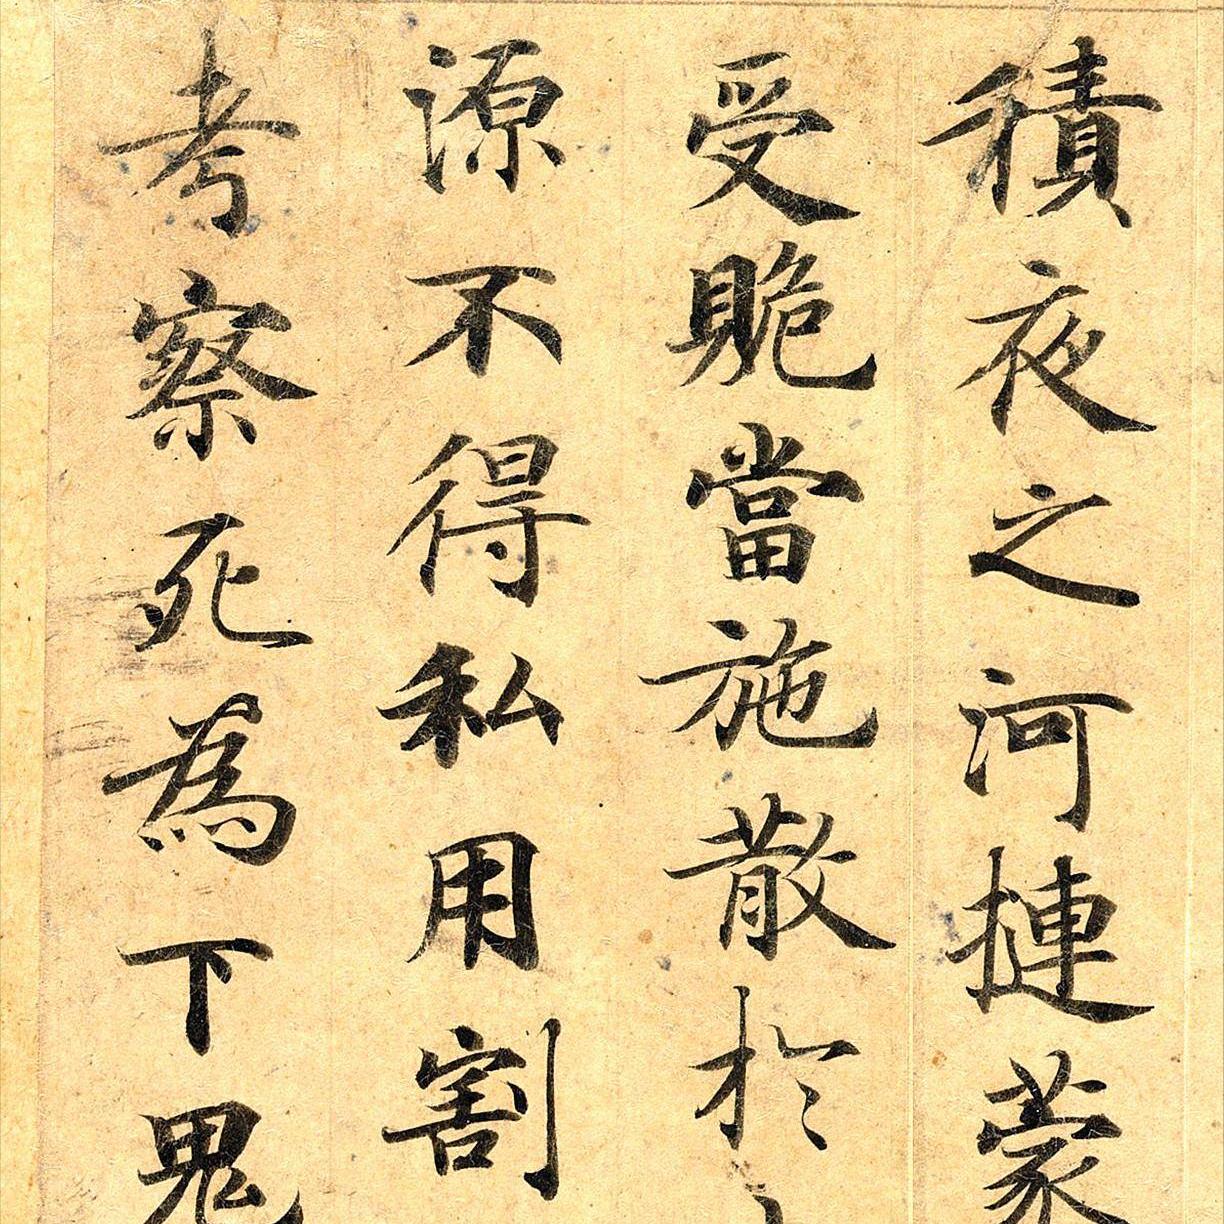 積夜之河摙蒙
受賝當施散於
源不得私用割
考察死為下鬼